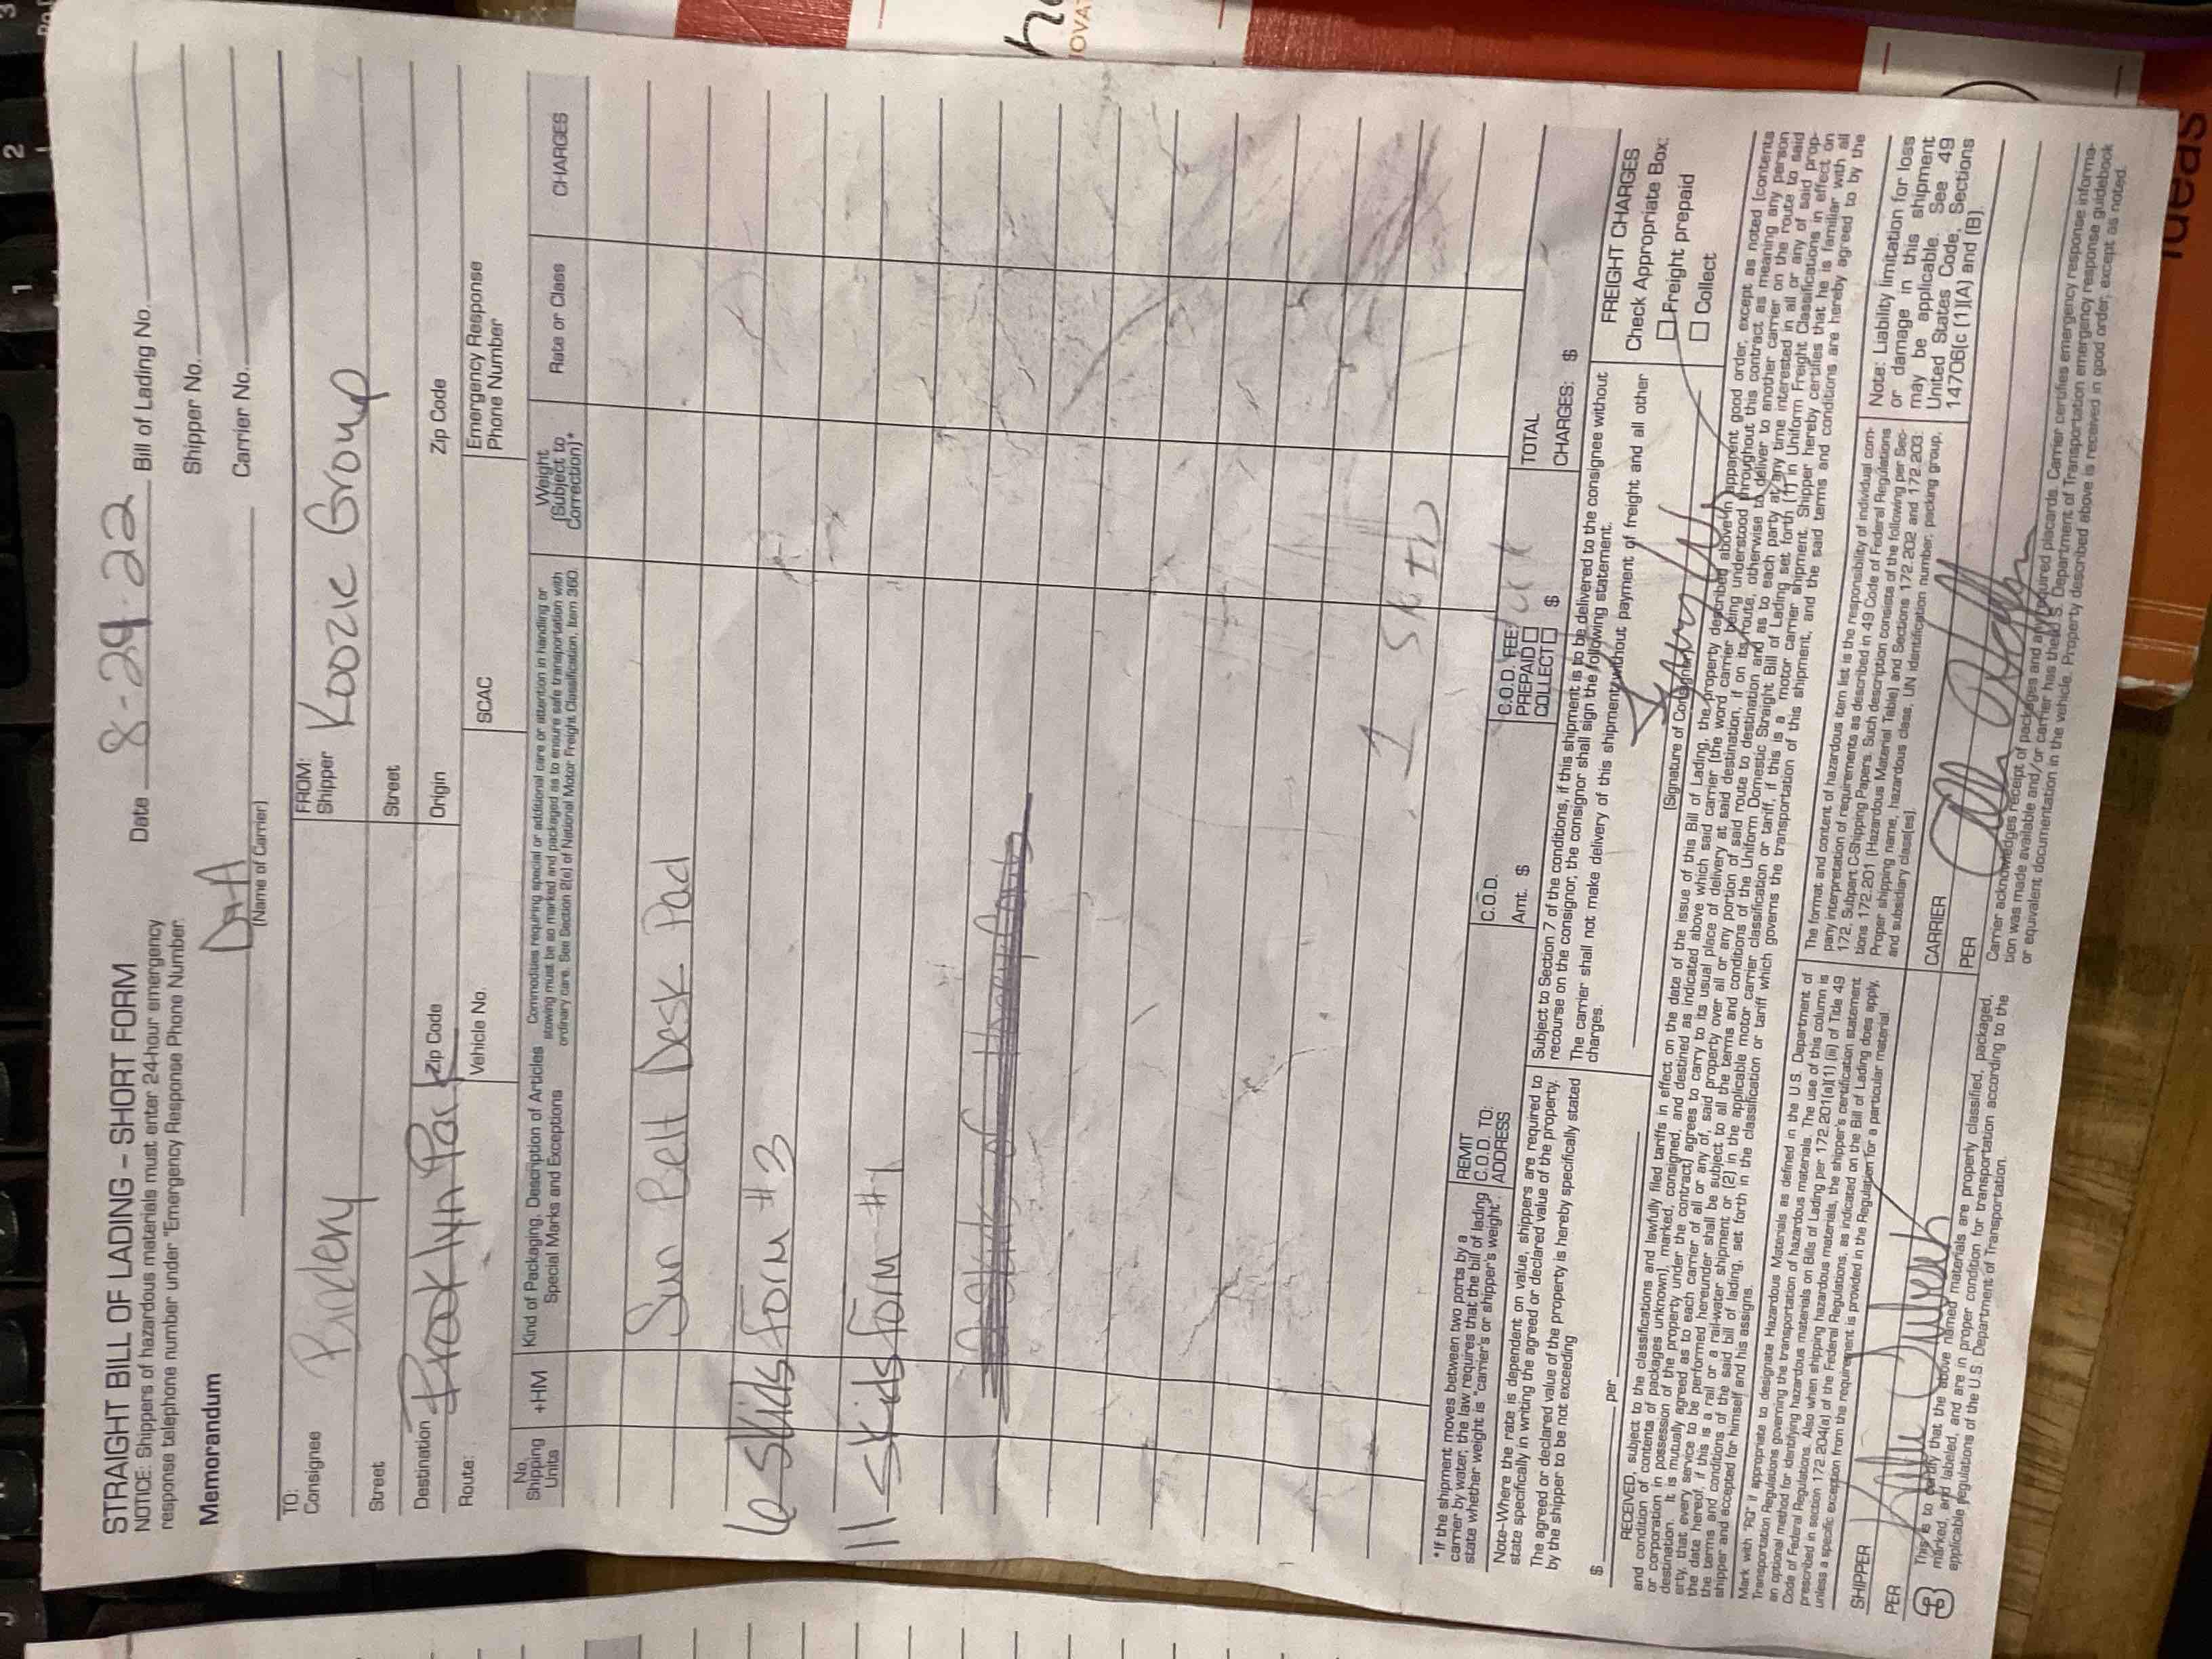 STRAIGHT BILL OF LADING – SHORT FORM
NOTICE: Shippers of hazardous materials must enter 24-hour emergency
response telephone number under "Emergency Response Phone Number.
Memorandum
Date 8-29-22 Bill of Lading No.
Shipper No.
Carrier No.
(Name of Carrier)
TO:
Consignee
Street
Destination Brooklyn Park Zip Code
Route:
Vehicle No.
FROM:
Shipper Koozie Group
Street
Origin
Zip Code
SCAC
Emergency Response
Phone Number
No.
Shipping
Units
+HM
Kind of Packaging, Description of Articles
Special Marks and Exceptions
Commodities requiring special or additional care or attention in handling or
stowing must be so marked and packaged as to ensure safe transportation with
ordinary care. See Section 2(e) of National Motor Freight Classification, Item 360.
Weight
(Subject to
Correction)*
Rate or Class
CHARGES
Sun Belt Desk Pad
6 skids Form #3
11 skids Form #1
*If the shipment moves between two ports by a
carrier by water, the law requires that the bill of lading
state whether weight is "carrier's or shipper's weight".
REMIT
C.O.D. TO:
ADDRESS
C.O.D.
Amt. $
C.O.D. FEE:
PREPAID
COLLECT $
TOTAL
CHARGES: $
Note-Where the rate is dependent on value, shippers are required to
state specifically in writing the agreed or declared value of the property.
The agreed or declared value of the property is hereby specifically stated
by the shipper to be not exceeding
$ per
Subject to Section 7 of the conditions, if this shipment is to be delivered to the consignee without
recourse on the consignor, the consignor shall sign the following statement.
The carrier shall not make delivery of this shipment without payment of freight and all other
charges.
(Signature of Consignor)
FREIGHT CHARGES
Check Appropriate Box:
Freight prepaid
Collect
RECEIVED, subject to the classifications and lawfully filed tariffs in effect on the date of the issue of this Bill of Lading, the property described above in apparent good order, except as noted (contents
and condition of contents of packages unknown), marked, consigned, and destined as indicated above which said carrier (the word carrier being understood throughout this contract as meaning any person
or corporation in possession of the property under the contract) agrees to carry to its usual place of delivery at said destination, if on its route, otherwise to deliver to another carrier on the route to said
destination. It is mutually agreed as to each carrier of all or any of, said property over all or any portion of said route to destination and as to each party at any time interested in all or any of said prop-
erty, that every service to be performed hereunder shall be subject to all the terms and conditions of the Uniform Domestic Straight Bill of Lading set forth (1) in Uniform Freight Classifications in effect on
the date hereof, if this is a rail or a rail-water shipment or (2) in the applicable motor carrier classification or tariff, if this is a motor carrier shipment. Shipper hereby certifies that he is familiar with all
the terms and conditions of the said bill of lading, set forth in the classification or tariff which governs the transportation of this shipment, and the said terms and conditions are hereby agreed to by the
shipper and accepted for himself and his assigns.
Mark with "RQ" if appropriate to designate Hazardous Materials as defined in the U.S. Department of
Transportation Regulations governing the transportation of hazardous materials. The use of this column is
an optional method for identifying hazardous materials on Bills of Lading per 172.201(a)(1) (iii) of Title 49
Code of Federal Regulations. Also when shipping hazardous materials, the shipper's certification statement
prescribed in section 172.204(a) of the Federal Regulations, as indicated on the Bill of Lading does apply,
unless a specific exception from the requirement is provided in the Regulation for a particular material.
The format and content of hazardous item list is the responsibility of individual com-
pany interpretation of requirements as described in 49 Code of Federal Regulations
172, Subpart C-Shipping Papers. Such description consists of the following per Sec-
tions 172.201 (Hazardous Material Table) and Sections 172.202 and 172.203:
Proper shipping name, hazardous class, UN identification number, packing group,
and subsidiary class(es).
Note: Liability limitation for loss
or damage in this shipment
may be applicable. See 49
United States Code, Sections
14706(c (1)(A) and (B).
SHIPPER
PER
CARRIER
PER
This is to certify that the above named materials are properly classified, packaged,
marked, and labeled, and are in proper condition for transportation according to the
applicable regulations of the U.S. Department of Transportation.
Carrier acknowledges receipt of packages and any required placards. Carrier certifies emergency response informa-
tion was made available and/or carrier has the U.S. Department of Transportation emergency response guidebook
or equivalent documentation in the vehicle. Property described above is received in good order, except as noted.